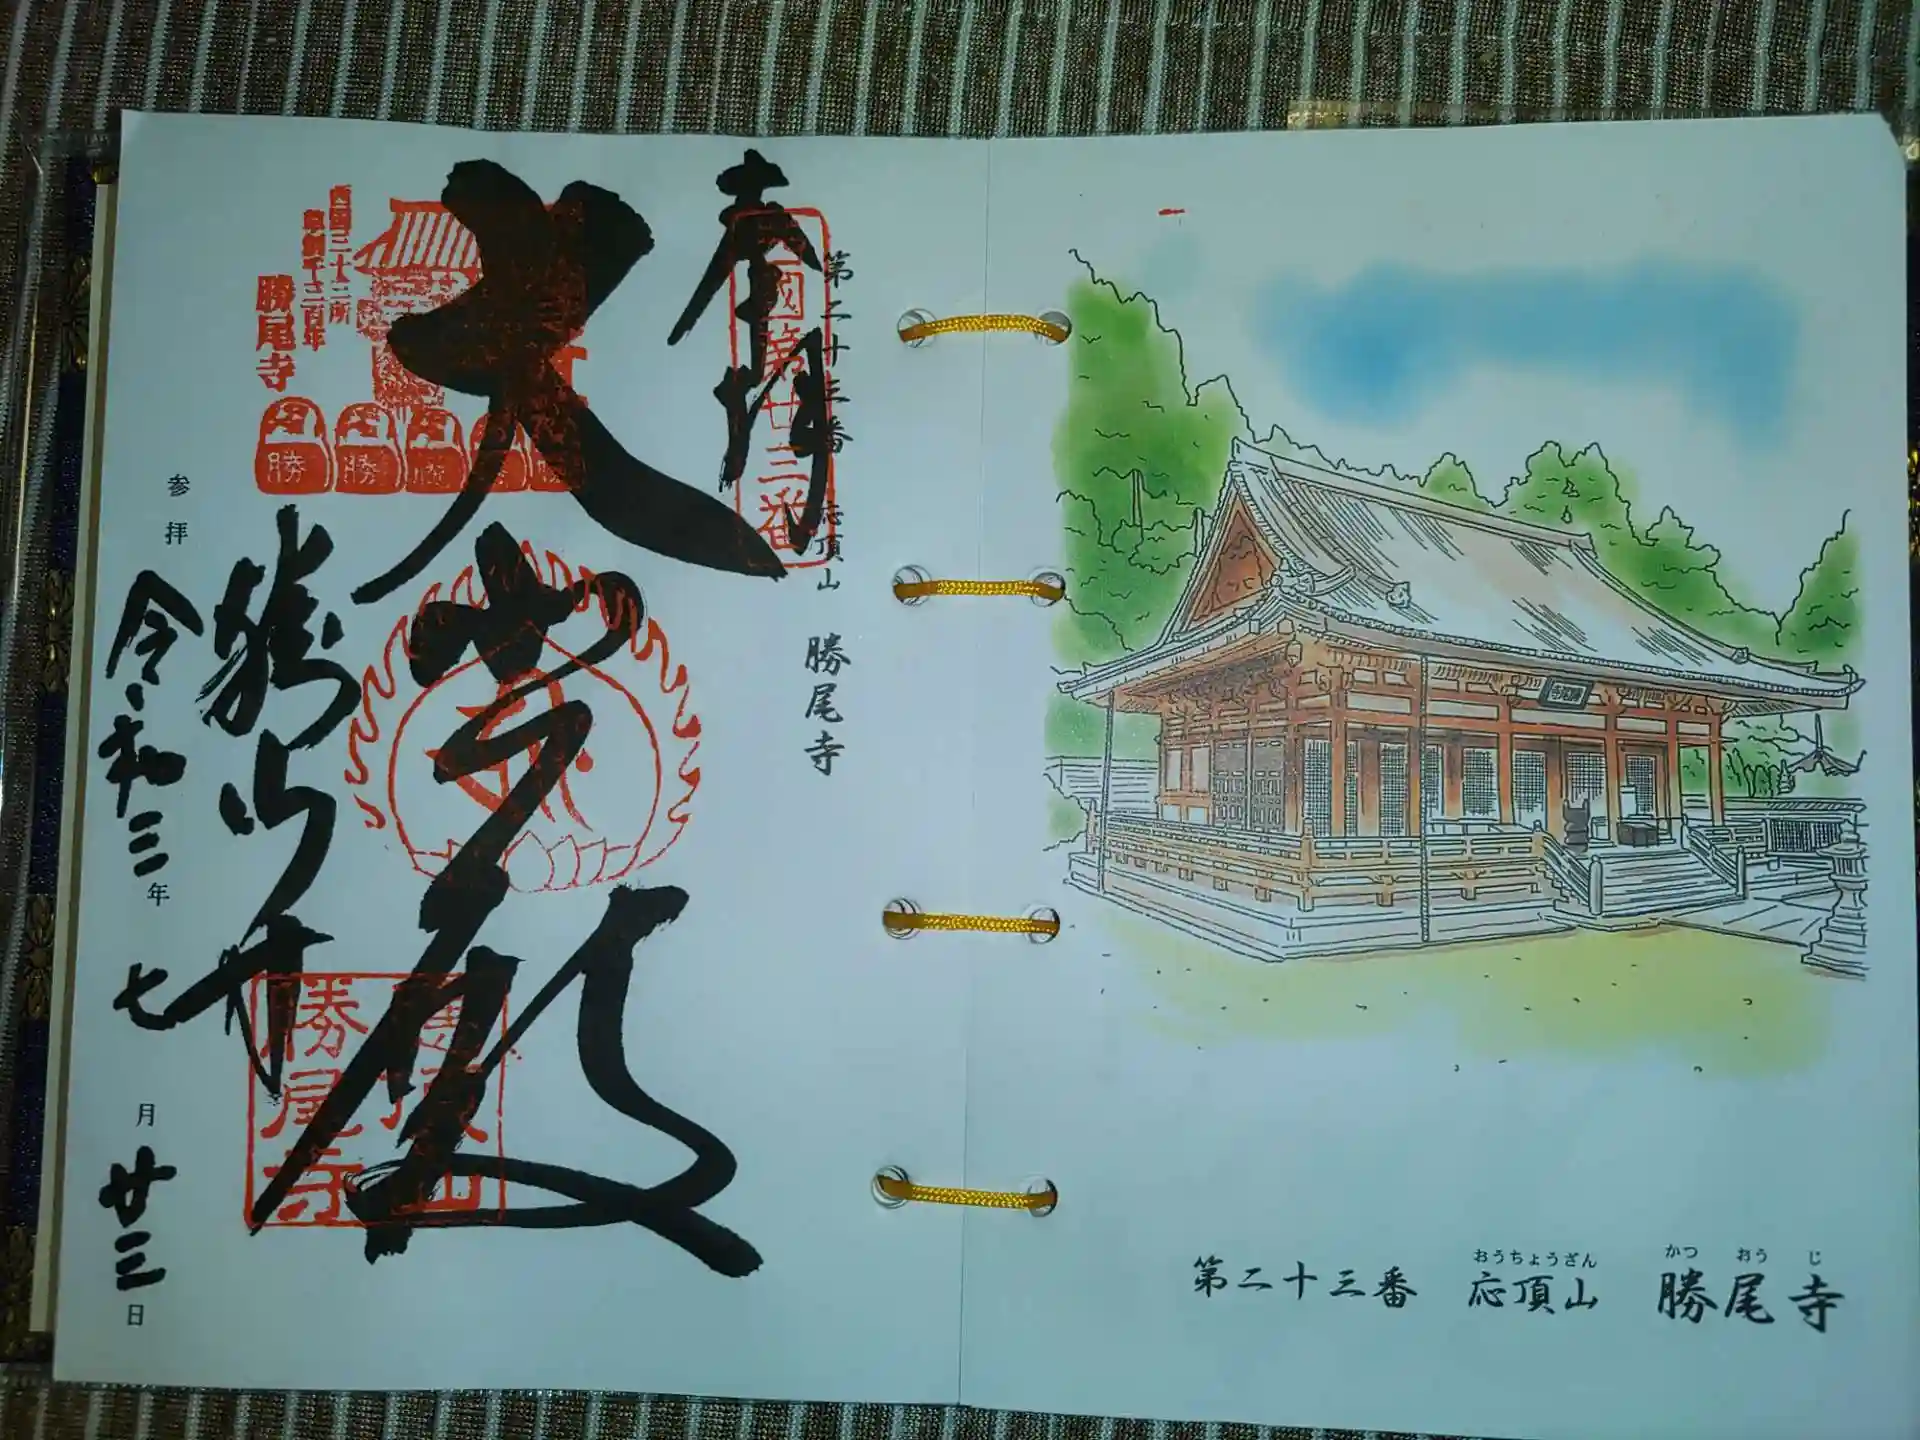 奉拝
西國第廿三番
第二十三番 応頂山 勝尾寺
大悲殿
西国三十三所
草創千三百年
勝尾寺
勝
勝
勝
勝尾寺
應頂山
勝尾寺
参拝
令和三年七月廿三日
勝尾寺
第二十三番 応頂山 勝尾寺
おうちょうざん
かつ おう じ